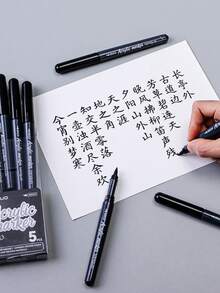 长亭外
古道边
芳草碧连天
晚风拂柳笛声残
夕阳山外山
天之涯
地之角
知交半零落
一壶浊酒尽余欢
今宵别梦寒
Acrylic marker
Acrylic
marker
5